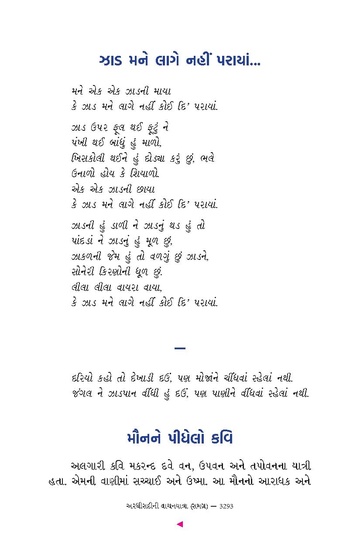 ઝાડ મને લાગે નહીં પરાયાં...
મને એક એક ઝાડની માયા
કે ઝાડ મને લાગે નહીં કોઈ દિ' પરાયાં.
ઝાડ ઉપર ફૂલ થઈ ફૂટું ને
પંખી થઈ બાંધું હું માળો,
ખિસકોલી થઈને હું દોડ્યા કરું છું, ભલે
ઉનાળો હોય કે શિયાળો.
એક એક ઝાડની છાયા
કે ઝાડ મને લાગે નહીં કોઈ દિ' પરાયાં.
ઝાડની હું ડાળી ને ઝાડનું થડ હું તો
પાંદડાં ને ઝાડનું હું મૂળ છું.
ઝાકળની જેમ હું તો વળગું છું ઝાડને,
સોનેરી કિરણોની ધૂળ છું.
લીલા લીલા વાયરા વાયા,
કે ઝાડ મને લાગે નહીં કોઈ દિ' પરાયાં.
દરિયો કહો તો દેખાડી દઉં, પણ મોજાંને ચીંધવાં સ્હેલાં નથી.
જંગલ ને ઝાડપાન વીંધી હું દઉં, પણ પાણીને વીંધવાં સ્હેલાં નથી.
મૌનને પીધેલો કવિ
અલગારી કવિ મકરન્દ દવે વન, ઉપવન અને તપોવનના યાત્રી
હતા. એમની વાણીમાં સચ્ચાઈ અને ઉષ્મા. આ મૌનનો આરાધક અને
અરધીસદીની વાચનયાત્રા (સમગ્ર) — 3293